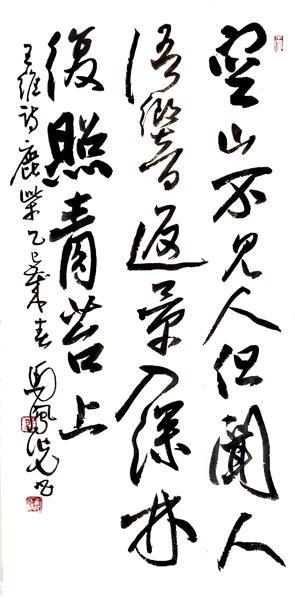 空山不見人但聞人
語響返景入深林
復照青苔上
王維詩鹿柴乙巳年春